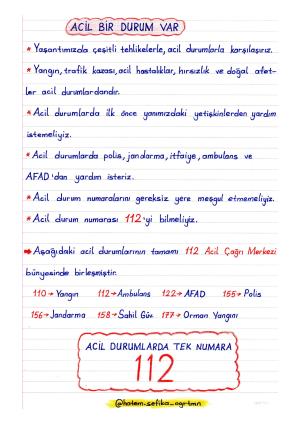 ACİL BİR DURUM VAR
* Yaşantımızda çeşitli tehlikelerle, acil durumlarla karşılaşırız.
* Yangın, trafik kazası, acil hastalıklar, hırsızlık ve doğal afet-
ler acil durumlardandır.
* Acil durumlarda ilk önce yanımızdaki yetişkinlerden yardım
istemeliyiz.
* Acil durumlarda polis, jandarma, itfaiye, ambulans ve
AFAD'dan yardım isteriz.
* Acil durum numaralarını gereksiz yere meşgul etmemeliyiz.
* Acil durum numarası 112'yi bilmeliyiz.
➡ Aşağıdaki acil durumlarının tamamı 112 Acil Çağrı Merkezi
bünyesinde birleşmiştir.
110 → Yangın 112 → Ambulans 122 → AFAD 155 → Polis
156 → Jandarma 158 → Sahil Güv. 177 → Orman Yangını
ACİL DURUMLARDA TEK NUMARA
112
@hatem_sefika_ogrtmn